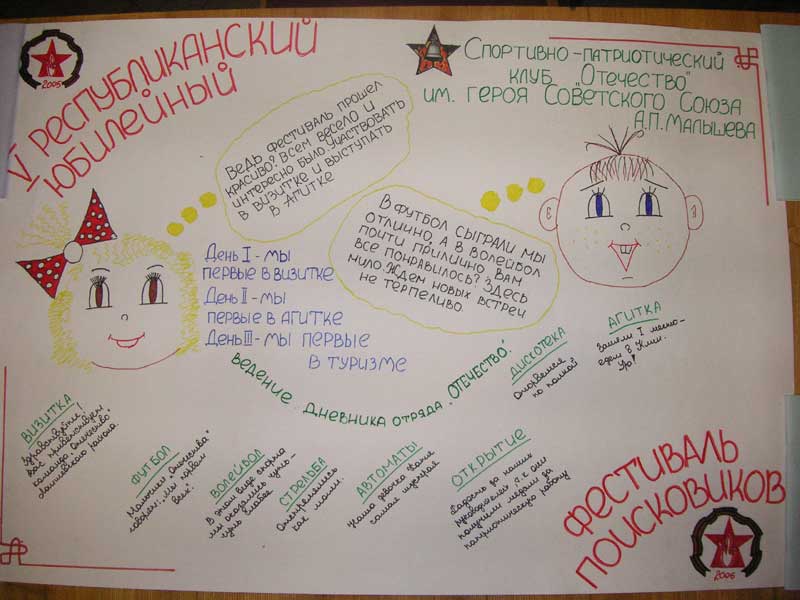 V РЕСПУБЛИКАНСКИЙ
ЮБИЛЕЙНЫЙ
2005
СПОРТИВНО-ПАТРИОТИЧЕСКИЙ
КЛУБ „ОТЕЧЕСТВО"
ИМ. ГЕРОЯ СОВЕТСКОГО СОЮЗА
А.П. МАЛЫШЕВА
ВЕДЬ ФЕСТИВАЛЬ ПРОШЕЛ
КРАСИВО? ВСЕМ ВЕСЕЛО И
ИНТЕРЕСНО БЫЛО УЧАСТВОВАТЬ
В ВИЗИТКЕ И ВЫСТУПАТЬ
В АГИТКЕ
В ФУТБОЛ СЫГРАЛИ МЫ
ОТЛИЧНО, А В ВОЛЕЙБОЛ
ПОЧТИ ПРИЛИЧНО. ВАМ
ВСЕ ПОНРАВИЛОСЬ? ЗДЕСЬ
МИЛО. ЖДЕМ НОВЫХ ВСТРЕЧ
НЕ ТЕРПЕЛИВО.
ДЕНЬ I - МЫ
ПЕРВЫЕ В ВИЗИТКЕ
ДЕНЬ II - МЫ
ПЕРВЫЕ В АГИТКЕ
ДЕНЬ III - МЫ ПЕРВЫЕ
В ТУРИЗМЕ
ВЕДЕНИЕ ДНЕВНИКА ОТРЯДА „ОТЕЧЕСТВО".
ВИЗИТКА
Здравствуйте!
Вас приветствует
команда „Отечество"
района
ФУТБОЛ
Мальчики „Отечества"
говорят: „Мы порвем
всех".
ВОЛЕЙБОЛ
В этом виде спорта
мы оказались чуть-
чуть слабее
СТРЕЛЬБА
Отстрелялись
как могли.
АВТОМАТЫ
Наша девочка Валя
самая шустрая
ОТКРЫТИЕ
Гордость за наших
руководителей, т.к они
получили медали за
патриотическую работу
ДИСКОТЕКА
Оторвемся
по полной
АГИТКА
Заняли I место-
едем в
Ура!
ФЕСТИВАЛЬ
ПОИСКОВИКОВ
2005